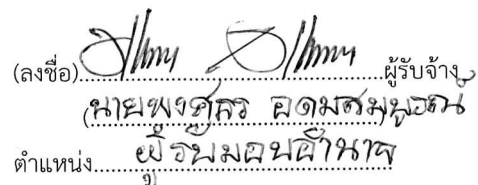 (ลงชื่อ)....................ผู้รับจ้าง
(นายพงศธร อุดมสมบูรณ์)
ตำแหน่ง....ผู้รับมอบอำนาจ